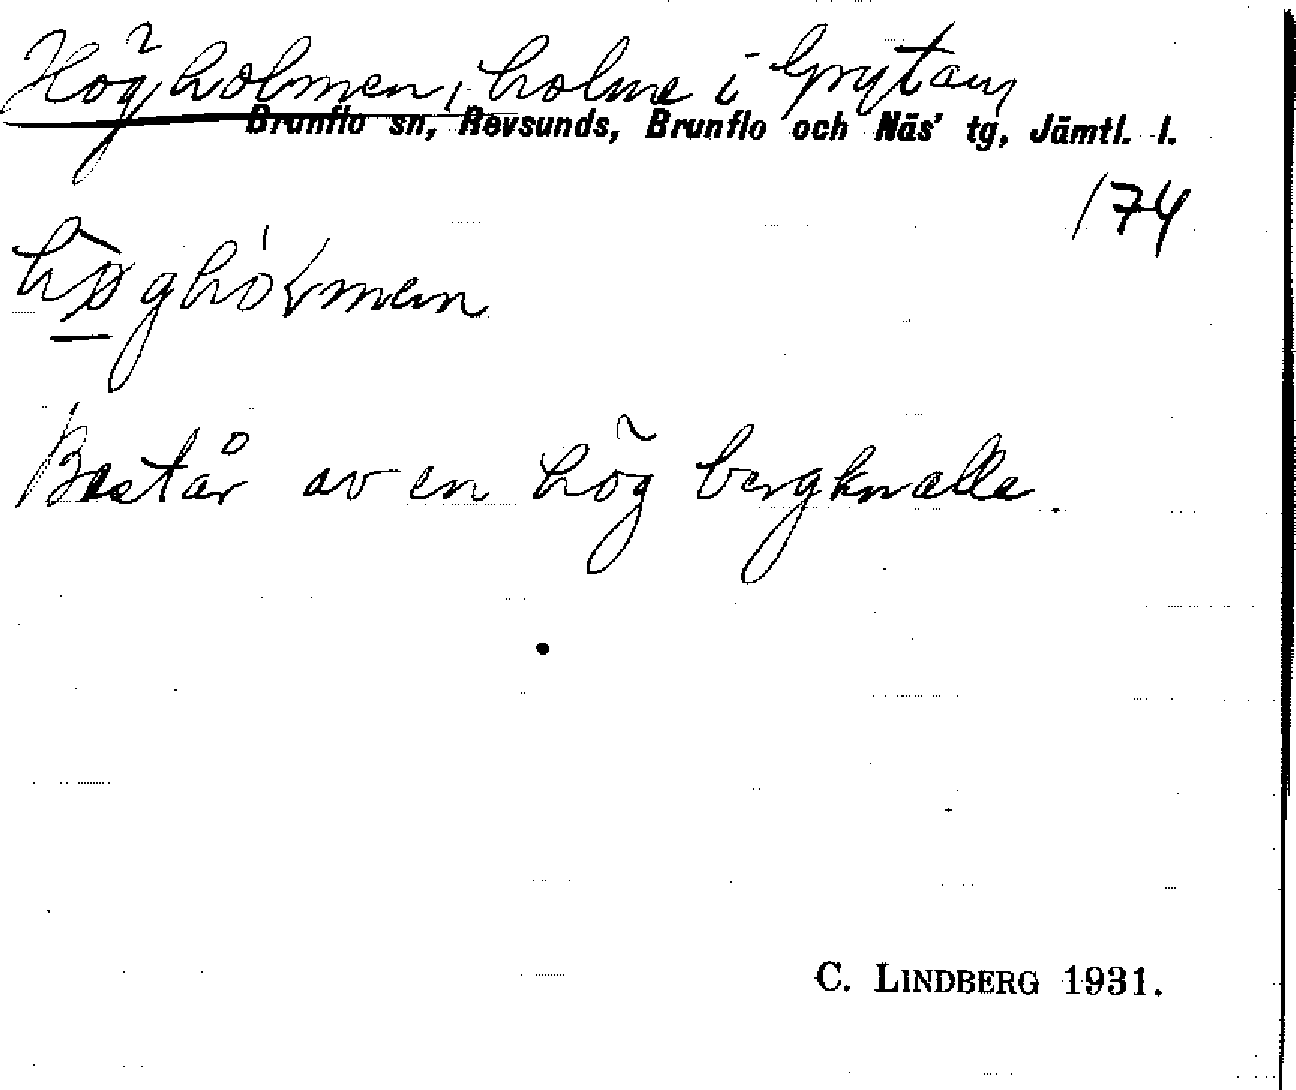 Högholmen, holme i Grytan
Brunflo sn, Revsunds, Brunflo och Näs' tg, Jämtl. l.
174
Består av en hög bergknalle.
C. LINDBERG 1931.